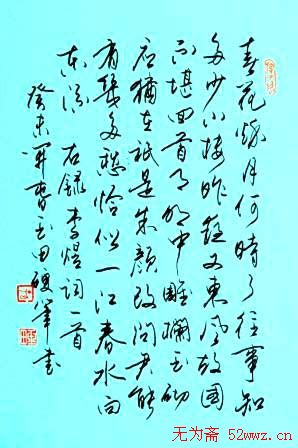 春花秋月何時了往事知
多少小樓昨夜又東風故國
不堪回首月明中雕欄玉砌
应猶在祇是朱顏改問君能
有幾多愁恰似一江春水向
東流 右録李煜词一首
癸未 田 書
无为斋 52wwz.cn